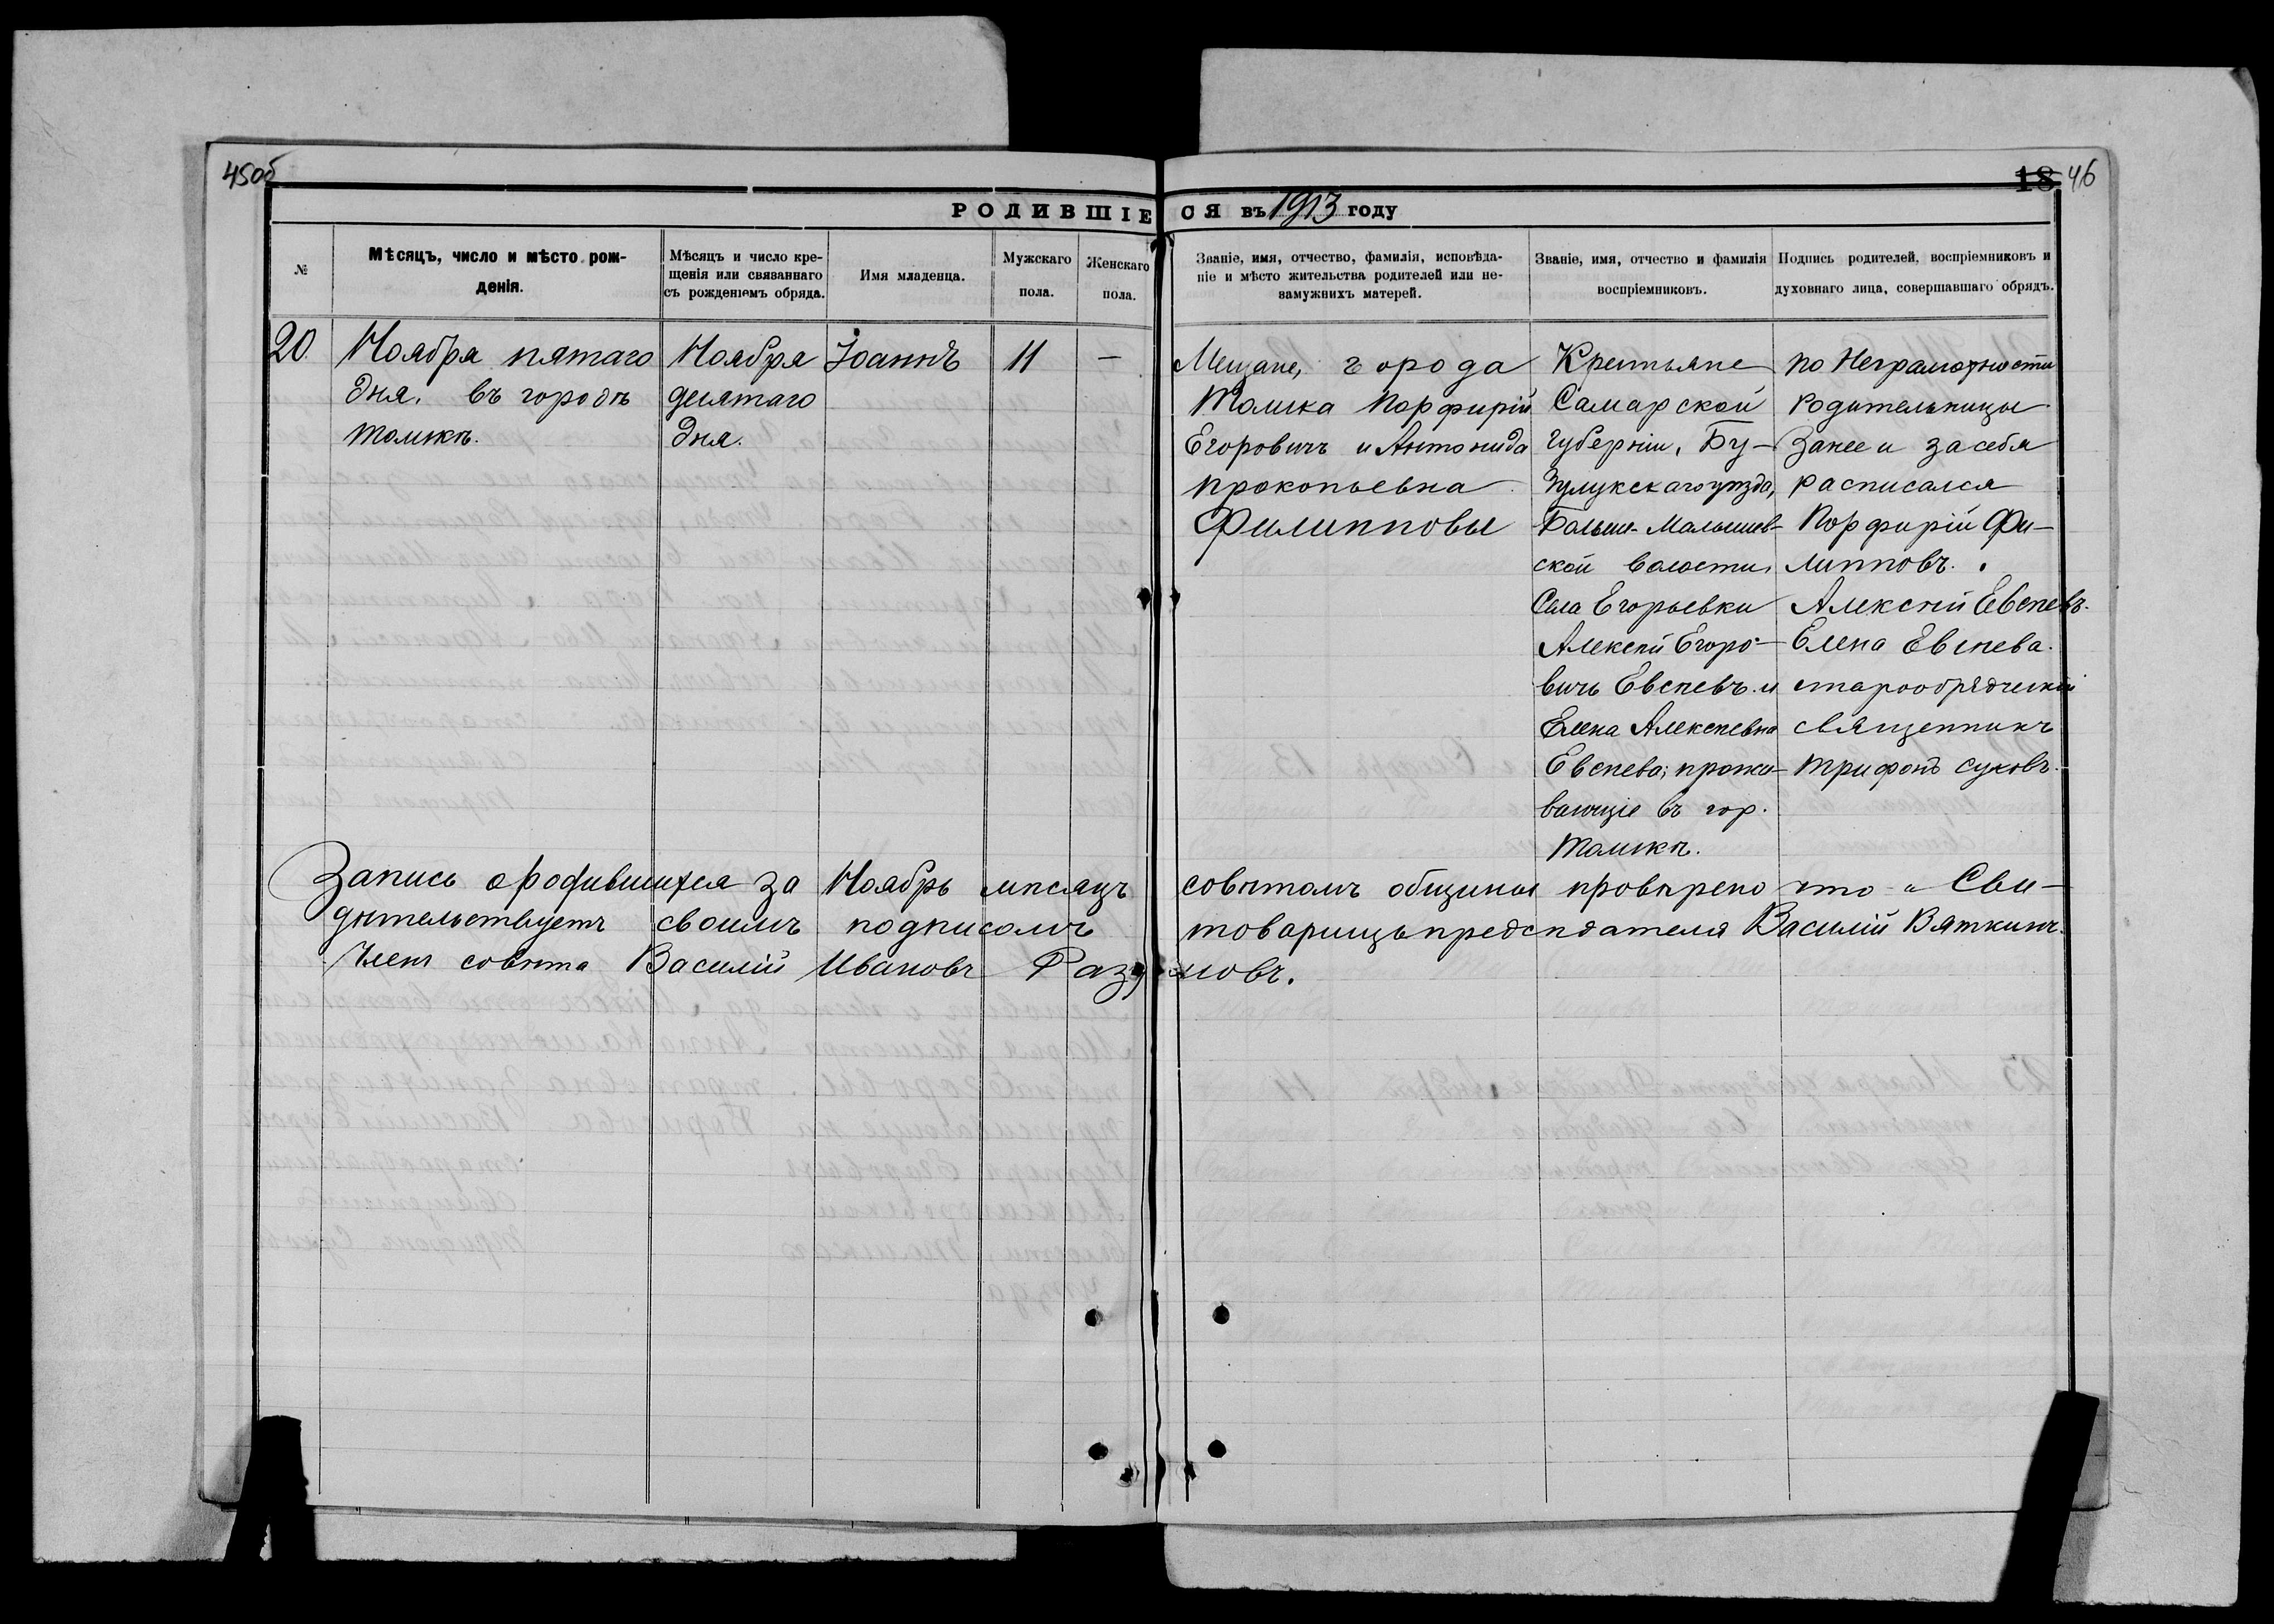 45об
18 46
РОДИВШІЕСЯ въ 1913 году
№
Мѣсяцъ, число и мѣсто рож-
денія.
Мѣсяцъ и число кре-
щенія или связаннаго
съ рожденіемъ обряда.
Имя младенца.
Мужскаго
пола.
Женскаго
пола.
Званіе, имя, отчество, фамилія, исповѣда-
ніе и мѣсто жительства родителей или не-
замужнихъ матерей.
Званіе, имя, отчество и фамилія
воспріемниковъ.
Подпись родителей, воспріемниковъ и
духовнаго лица, совершавшаго обрядъ.
20.
Ноября пятаго
дня. въ городѣ
Томскѣ.
Ноября
десятаго
дня.
Іоаннъ
11
—
Мещане, города
Томска Порфирій
Егоровичъ и Антонида
Прокопьевна
Филипповы
Крестьяне
Самарской
Губерніи, Бу-
зулукскаго уѣзда,
Больше-Малышев-
ской волости,
Села Егорьевки
Алексѣй Егоро-
вичъ Евсѣевъ и
Елена Алексѣевна
Евсѣева; прожи-
вающіе въ гор.
Томскѣ.
по Неграмотности
Родительницы
Занее и засебя
расписался
Порфирій Фи-
липповъ.
Алексѣй Евсѣевъ.
Елена Евсѣева.
старообрядческій
священникъ
Трифонъ Суховъ.
Запись ородившихся за Ноябрь мѣсяцъ совѣтомъ общины провѣрено что и Сви-
дѣтельствуетъ своимъ подписомъ товарищъ предсѣдателя Василій Вяткинъ.
Членъ совѣта Василій Ивановъ Разумовъ.